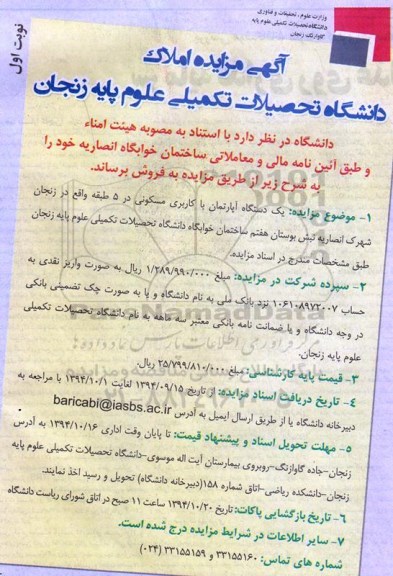 وزارت علوم، تحقیقات و فناوری
دانشگاه تحصیلات تکمیلی علوم پایه
گاوازنگ زنجان
نوبت اول
آگهی مزایده املاک
دانشگاه تحصیلات تکمیلی علوم پایه زنجان
دانشگاه در نظر دارد با استناد به مصوبه هیئت امناء
و طبق آئین نامه مالی و معاملاتی ساختمان خوابگاه انصاریه خود را
به شرح زیر از طریق مزایده به فروش برساند.
۱- موضوع مزایده: یک دستگاه آپارتمان با کاربری مسکونی در ۵ طبقه واقع در زنجان
شهرک انصاریه نبش بوستان هفتم ساختمان خوابگاه دانشگاه تحصیلات تکمیلی علوم پایه زنجان
طبق مشخصات مندرج در اسناد مزایده.
۲- سپرده شرکت در مزایده: مبلغ ۱/۲۸۹/۹۹۰/۰۰۰ ریال به صورت واریز نقدی به
حساب ۱۰۶۱۰۸۹۷۲۰۰۷ نزد بانک ملی به نام دانشگاه و یا به صورت چک تضمینی بانکی
در وجه دانشگاه و یا ضمانت نامه بانکی معتبر سه ماهه به نام دانشگاه تحصیلات تکمیلی
علوم پایه زنجان.
۳- قیمت پایه کارشناسی: مبلغ ۲۵/۷۹۹/۸۱۰/۰۰۰ ریال.
۴- تاریخ دریافت اسناد مزایده: از تاریخ ۱۳۹۴/۰۹/۱۵ لغایت ۱۳۹۴/۱۰/۱ با مراجعه به
دبیرخانه دانشگاه یا از طریق ارسال ایمیل به آدرس baricabi@iasbs.ac.ir
۵- مهلت تحویل اسناد و پیشنهاد قیمت: تا پایان وقت اداری ۱۳۹۴/۱۰/۱۶ به آدرس
زنجان-جاده گاوازنگ-روبروی بیمارستان آیت اله موسوی-دانشگاه تحصیلات تکمیلی علوم پایه
زنجان-دانشکده ریاضی-اتاق شماره ۱۵۸(دبیرخانه دانشگاه) تحویل و رسید اخذ نمایند.
۶- تاریخ بازگشایی پاکات: تاریخ ۱۳۹۴/۱۰/۲۰ ساعت ۱۱ صبح در اتاق شورای ریاست دانشگاه
۷- سایر اطلاعات در شرایط مزایده درج شده است.
شماره های تماس: ۳۳۱۵۵۱۶۰ و ۳۳۱۵۵۱۵۹ (۰۲۴)
ParsNamadData